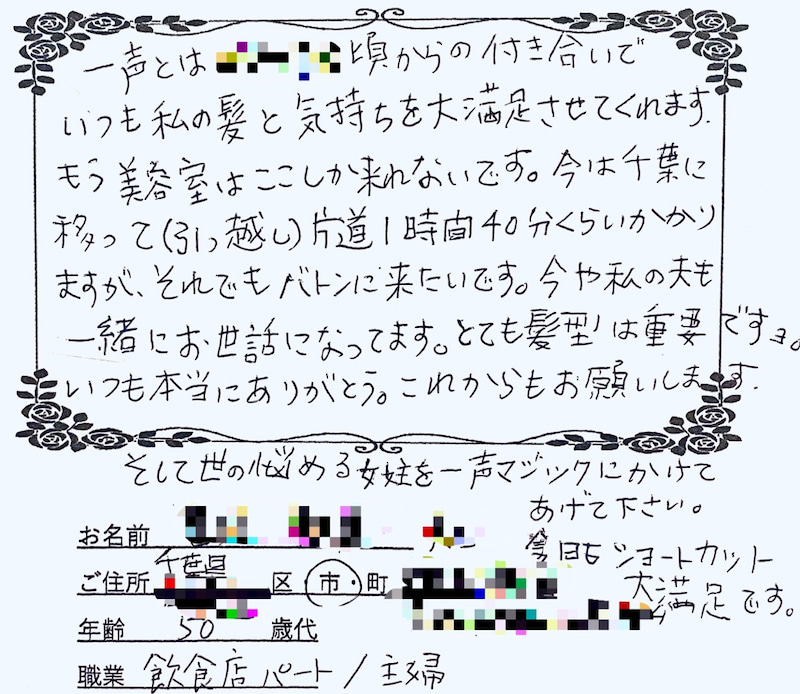 一声とは 頃からの付き合いで
いつも私の髪と気持ちを大満足させてくれます.
もう美容室はここしか来れないです。今は千葉に
移って(引っ越し)片道1時間40分くらいかかり
ますが、それでもバトンに来たいです。今や私の夫も
一緒にお世話になってます。とても髪型は重要ですョ。
いつも本当にありがとう。これからもお願いします.
そして世の悩める女性を一声マジックにかけて
あげて下さい。
今日もショートカット
大満足です。
お名前
千葉県
ご住所 区・市・町
年齢 50 歳代
職業 飲食店パート/主婦